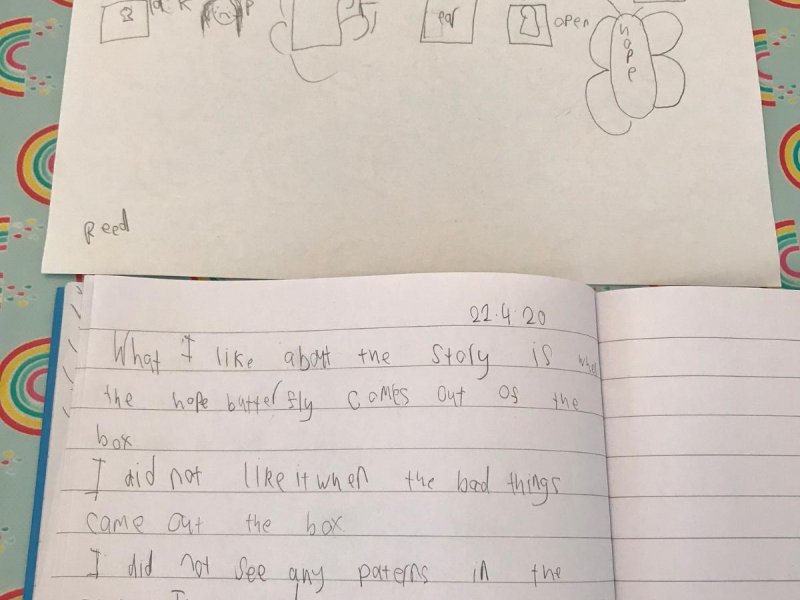 open
hope
Reed
22.4.20
What I like about the story is when
the hope butterfly comes out of the
box
I did not like it when the bad things
came out the box
I did not see any paterns in the